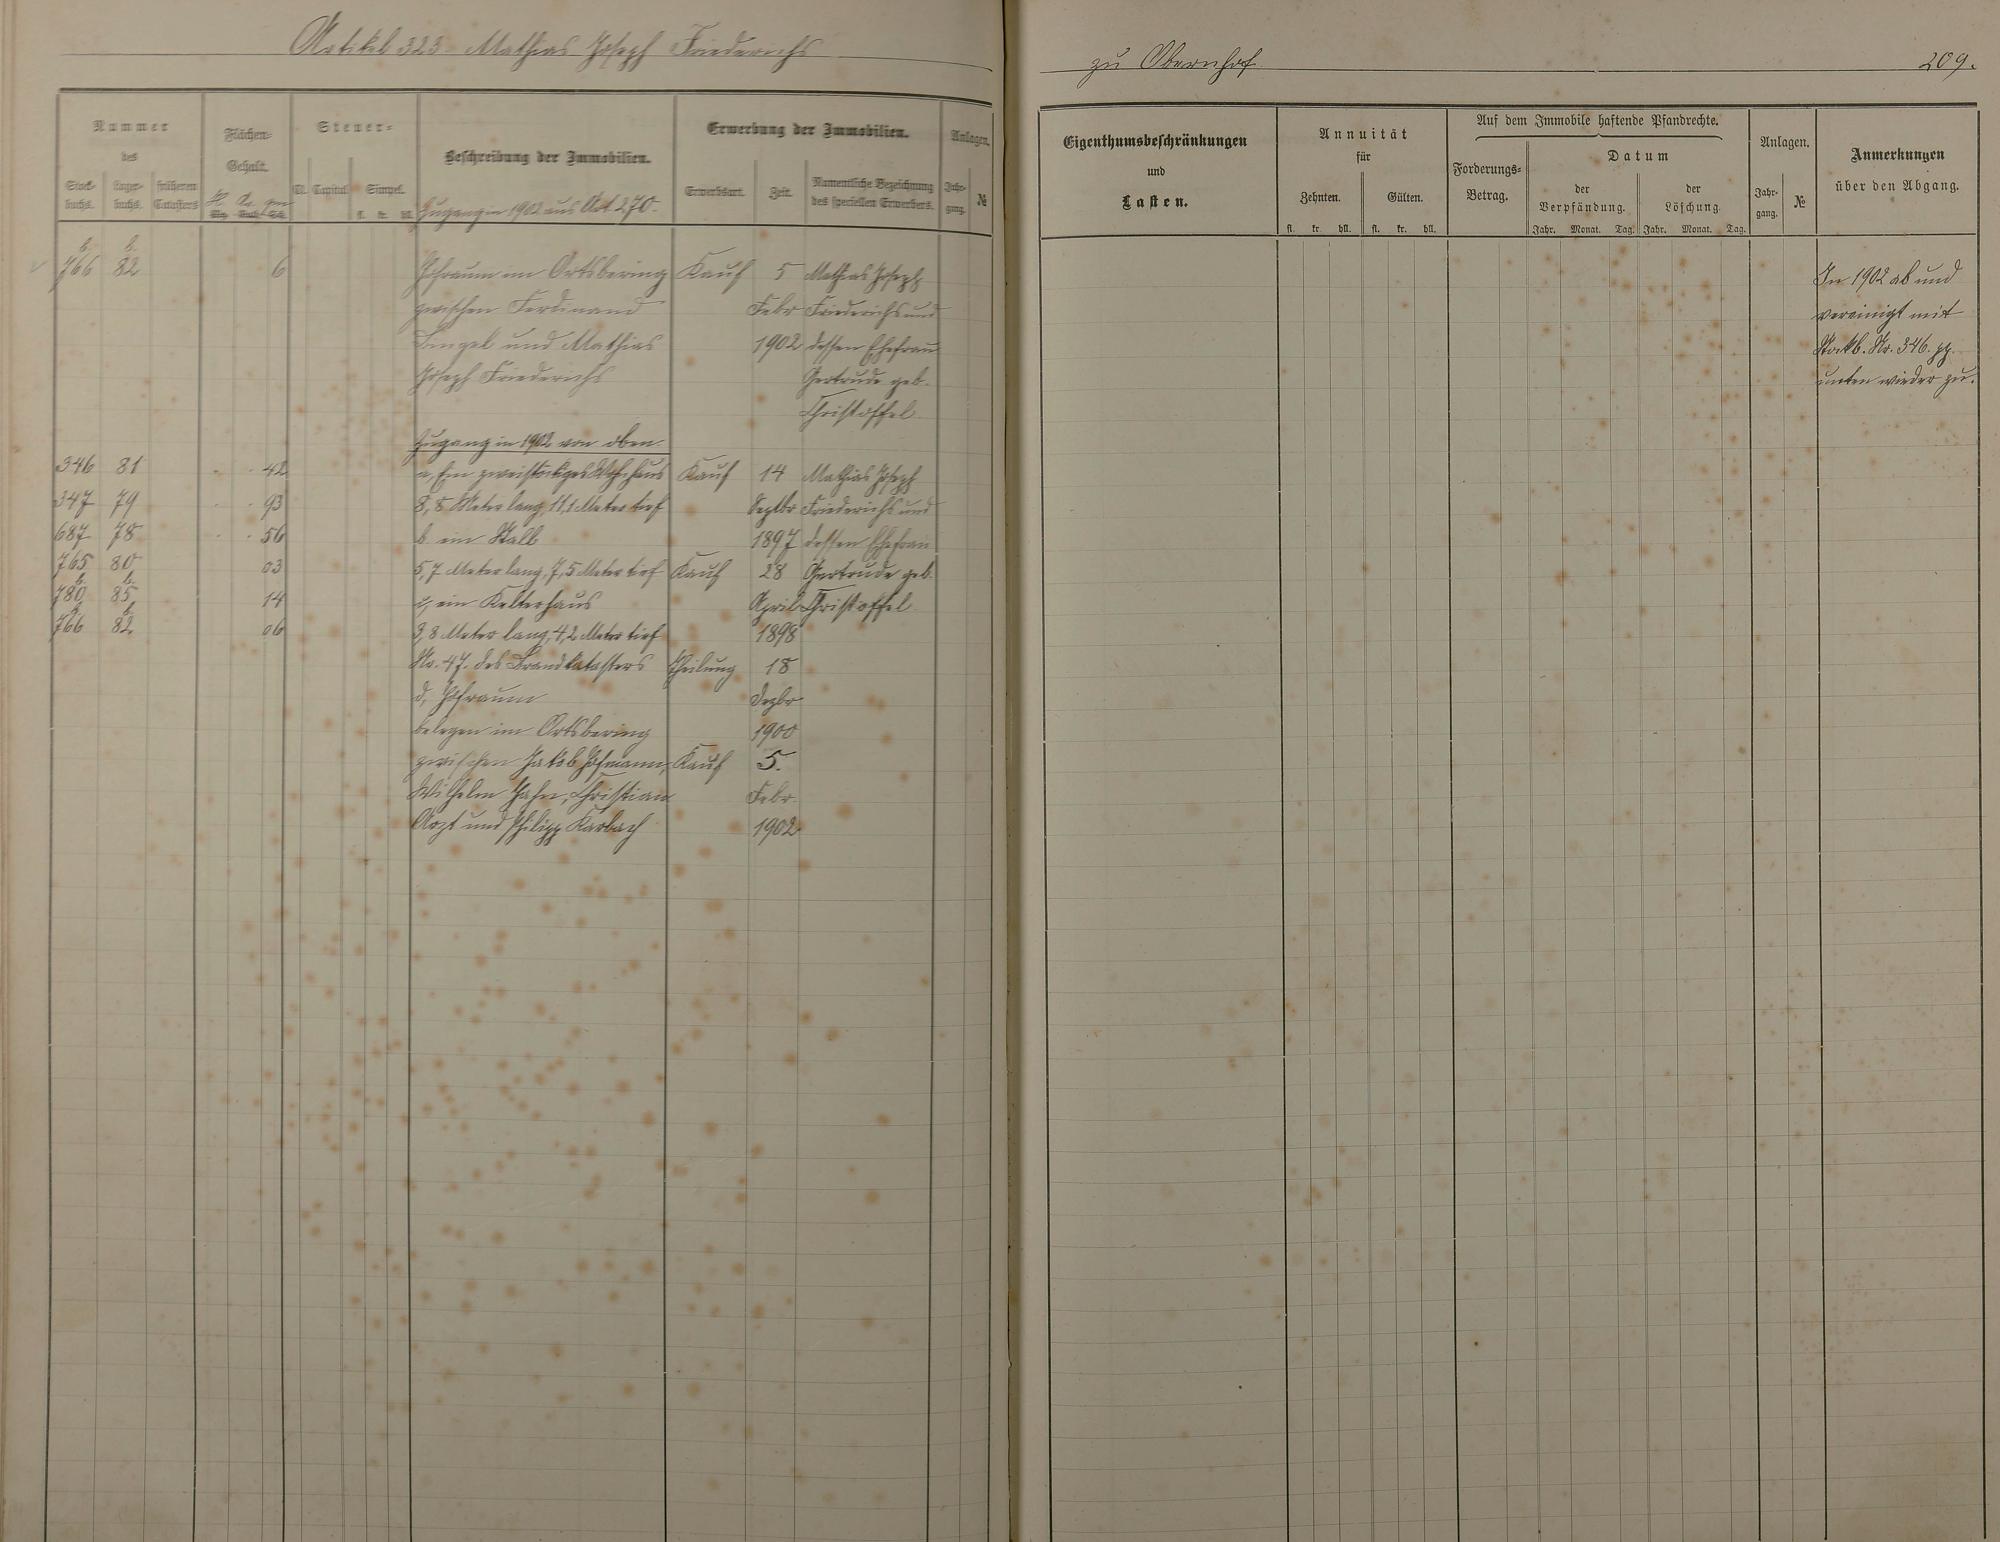 Artikel 323 Mathias Joseph Friederichs
zu Obernhof
209.
Nummer
des
Stock-
buchs.
Lager-
buchs.
früheren
Catasters
Flächen-
Gehalt.
Steuer-
Cl. Capital. Simpel.
fl. kr. hll.
Beschreibung der Immobilien.
Zugang in 1902 aus Art 270.
Erwerbung der Immobilien.
Erwerbsart.
Zeit.
Namentliche Bezeichnung
des speciellen Erwerbers.
Anlagen.
Jahr-
gang.
№
Eigenthumsbeschränkungen
und
Lasten.
Annuität
für
Zehnten.
Gülten.
fl. kr. hll. fl. kr. hll.
Auf dem Immobile haftende Pfandrechte.
Forderungs-
Betrag.
Datum
der
Verpfändung.
der
Löschung.
Jahr. Monat. Tag. Jahr. Monat. Tag.
Anlagen.
Jahr-
gang.
№
Anmerkungen
über den Abgang.
b. b.
766 82 6 Hofraum im Ortsbering Kauf 5 Mathias Joseph
zwischen Ferdinand Febr Friederichs und
und Mathias 1902 dessen Ehefrau
Joseph Friederichs Gertrude geb.
Christoffel
In 1902 ab und
vereinigt mit
Stockb. Nr. 346. pp.
unten wieder zu.
Zugang in 1902 von oben
346 81 42 a, Ein zweistöckiges Wohnhaus Kauf 14 Mathias Joseph
347 79 93 8,8 Meter lang, 11,1 Meter tief Septbr Friederichs und
687 78 56 b ein Stall 1897 dessen Ehefrau
765 80 03 5,7 Meter lang, 7,5 Meter tief Kauf 28 Gertrude geb.
b. b.
780 85 14 c, ein Kelterhaus April Christoffel
b. b.
766 82 06 3,8 Meter lang, 4,2 Meter tief 1898
Nr. 47. des Brandkatasters Theilung 18
d, Hofraum Dezbr
belegen im Ortsbering 1900
zwischen Jakob Hofmann, Kauf 5.
Wilhelm Hahn, Christian Febr.
Arzt und Philipp Karbach 1902